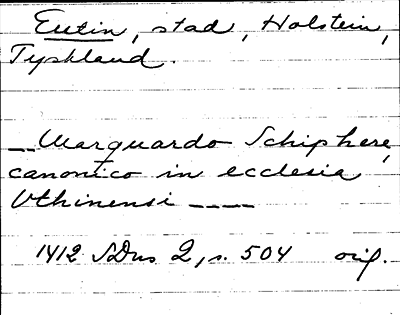 Eutin, stad, Holstein,
Tyskland.
_ Marquardo Schiphere,
canonico in ecclesia
Vthinensi ____
1412 SDns 2, s. 504 orig.